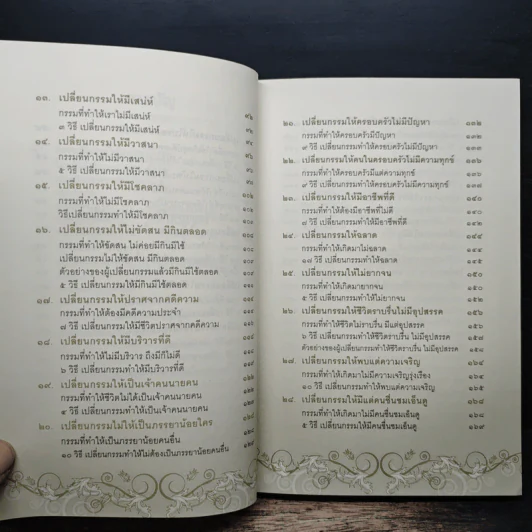 ๑๓. เปลี่ยนกรรมให้มีเสน่ห์
กรรมที่ทำให้เราไม่มีเสน่ห์ ๙๒
๓ วิธี เปลี่ยนกรรมให้มีเสน่ห์
๑๔. เปลี่ยนกรรมให้มีวาสนา
กรรมที่ทำให้ไม่มีวาสนา
๕ วิธี เปลี่ยนกรรมให้มีวาสนา
๑๕. เปลี่ยนกรรมให้มีโชคลาภ
กรรมที่ทำให้ไม่มีโชคลาภ
วิธีเปลี่ยนกรรมทำให้มีโชคลาภ
๑๖. เปลี่ยนกรรมให้ไม่ขัดสน มีกินตลอด
กรรมที่ทำให้ขัดสน ไม่ค่อยมีกินมีใช้
เปลี่ยนกรรมไม่ให้ขัดสน มีกินตลอด
ตัวอย่างของผู้เปลี่ยนกรรมแล้วมีกินมีใช้ตลอด
๕ วิธี เปลี่ยนกรรมให้มีกินมีใช้ตลอด
๑๗. เปลี่ยนกรรมให้ปราศจากคดีความ
กรรมที่ทำให้ต้องมีคดีความประจำ
๗ วิธี เปลี่ยนกรรมให้มีชีวิตปราศจากคดีความ
๑๘. เปลี่ยนกรรมให้มีบริวารที่ดี
กรรมที่ทำให้ไม่มีบริวาร ถึงมีก็ไม่ดี
๖ วิธี เปลี่ยนกรรมทำให้มีบริวารที่ดี
๑๙. เปลี่ยนกรรมให้เป็นเจ้าคนนายคน
กรรมที่ทำให้ชีวิตไม่ได้เป็นเจ้าคนนายคน
๔ วิธี เปลี่ยนกรรมทำให้เป็นเจ้าคนนายคน
๒๐. เปลี่ยนกรรมไม่ให้เป็นภรรยาน้อยใคร
กรรมที่ทำให้เป็นภรรยาน้อยคนอื่น
๑๐ วิธี เปลี่ยนกรรมทำให้ไม่ต้องเป็นภรรยาน้อยคนอื่น
๒๑. เปลี่ยนกรรมให้ครอบครัวไม่มีปัญหา ๑๓๒
กรรมที่ทำให้ครอบครัวมีปัญหา ๑๓๒
๙ วิธี เปลี่ยนกรรมทำให้ครอบครัวไม่มีปัญหา
๒๒. เปลี่ยนกรรมให้คนในครอบครัวไม่มีความทุกข์ ๑๓๖
กรรมที่ทำให้ครอบครัวมีแต่ความทุกข์ ๑๓๖
๙ วิธี เปลี่ยนกรรมทำให้ครอบครัวไม่มีความทุกข์
๒๓. เปลี่ยนกรรมให้มีอาชีพที่ดี ๑๔๐
กรรมที่ทำให้ต้องมีอาชีพที่ไม่ดี ๑๔๐
๗ วิธี เปลี่ยนกรรมทำให้มีอาชีพที่ดี
๒๔. เปลี่ยนกรรมให้ฉลาด ๑๔๔
กรรมที่ทำให้เกิดมาไม่ฉลาด ๑๔๔
๑๗ วิธี เปลี่ยนกรรมทำให้ฉลาด
๒๕. เปลี่ยนกรรมให้ไม่ยากจน ๑๕๐
กรรมที่ทำให้เกิดมายากจน ๑๕๐
๕ วิธี เปลี่ยนกรรมทำให้ไม่ยากจน ๑๕๒
๒๖. เปลี่ยนกรรมให้ชีวิตราบรื่นไม่มีอุปสรรค
กรรมที่ทำให้ชีวิตไม่ราบรื่น มีแต่อุปสรรค
๖ วิธี เปลี่ยนกรรมทำให้ชีวิตราบรื่น ไม่มีอุปสรรค
ตัวอย่างของผู้เปลี่ยนกรรมทำให้ชีวิตราบรื่น ไม่มีอุปสรรค
๒๗. เปลี่ยนกรรมให้พบแต่ความเจริญ
กรรมที่ทำให้เกิดมาไม่มีความเจริญรุ่งเรือง
๑๐ วิธี เปลี่ยนกรรมทำให้พบแต่ความเจริญ ๑๖๕
๒๘. เปลี่ยนกรรมให้มีแต่คนชื่นชมเอ็นดู ๑๖๘
กรรมที่ทำให้เกิดมาไม่มีคนชื่นชมเอ็นดู ๑๖๘
๕ วิธี เปลี่ยนกรรมทำให้มีคนชื่นชมเอ็นดู ๑๖๙